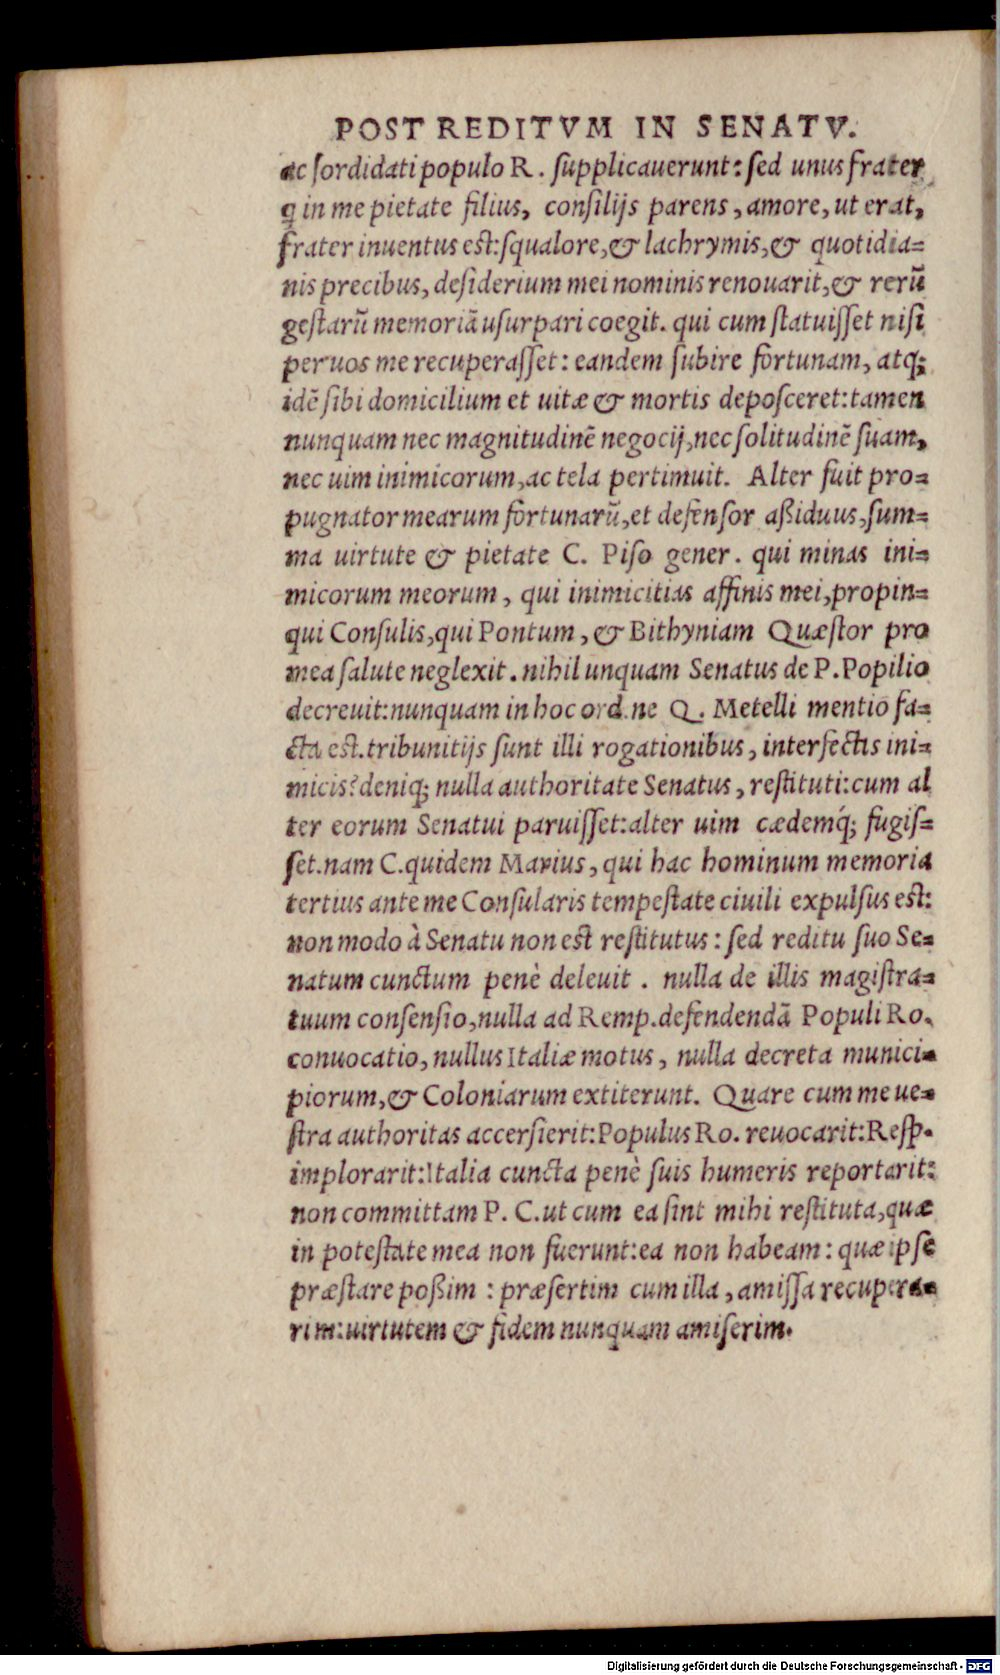 POST REDITVM IN SENATV.
ac ſordidati populo R. ſupplicauerunt: ſed unus frater
q̃ in me pietate filius, conſilijs parens, amore, ut erat,
frater inuentus est: ſqualore, & lachrymis, & quotidia=
nis precibus, deſiderium mei nominis renouarit, & rerũ
geſtarũ memoriã uſurpari coegit. qui cum ſtatuiſſet niſi
per uos me recuperaſſet: eandem ſubire fortunam, atq;
idẽ ſibi domicilium et uitæ & mortis depoſceret: tamen
nunquam nec magnitudinẽ negocij, nec ſolitudinẽ ſuam,
nec uim inimicorum, ac tela pertimuit. Alter fuit pro=
pugnator mearum fortunarũ, et defenſor aßiduus, ſum=
ma uirtute & pietate C. Piſo gener. qui minas ini=
micorum meorum, qui inimicitias affinis mei, propin=
qui Conſulis, qui Pontum, & Bithyniam Quæſtor pro
mea ſalute neglexit. nihil unquam Senatus de P. Popilio
decreuit: nunquam in hoc ord ne Q. Metelli mentio fa=
cta est. tribunitijs ſunt illi rogationibus, interfectis ini=
micis? deniq; nulla authoritate Senatus, reſtituti: cum al
ter eorum Senatui paruiſſet: alter uim cædemq́; fugiſ=
ſet. nam C. quidem Marius, qui hac hominum memoria
tertius ante me Conſularis tempeſtate ciuili expulſus est:
non modo à Senatu non est reſtitutus: ſed reditu ſuo Se=
natum cunctum penè deleuit. nulla de illis magiſtra=
tuum conſenſio, nulla ad Remp. defendendã Populi Ro.
conuocatio, nullus Italiæ motus, nulla decreta munici=
piorum, & Coloniarum extiterunt. Quare cum me ue=
ſtra authoritas accerſierit: Populus Ro. reuocarit: Reſp.
implorarit: Italia cuncta penè ſuis humeris reportarit:
non committam P. C. ut cum ea ſint mihi reſtituta, quæ
in poteſtate mea non fuerunt: ea non habeam: quæ ipſe
præſtare poßim: præſertim cum illa, amiſſa recupera=
rim: uirtutem & fidem nunquam amiſerim.
Digitalisierung gefördert durch die Deutsche Forschungsgemeinschaft - DFG